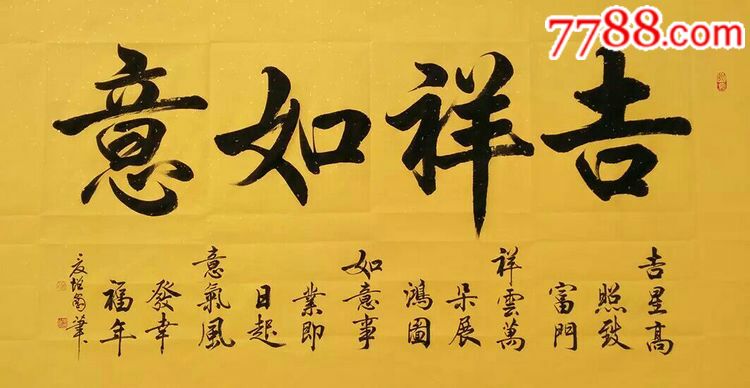 7788.com
中国收藏热线
吉祥如意
吉星高
照致
富門
祥雲萬
朵展
鴻圖
如意事
業即
日起
意氣風
發幸
福年
筆